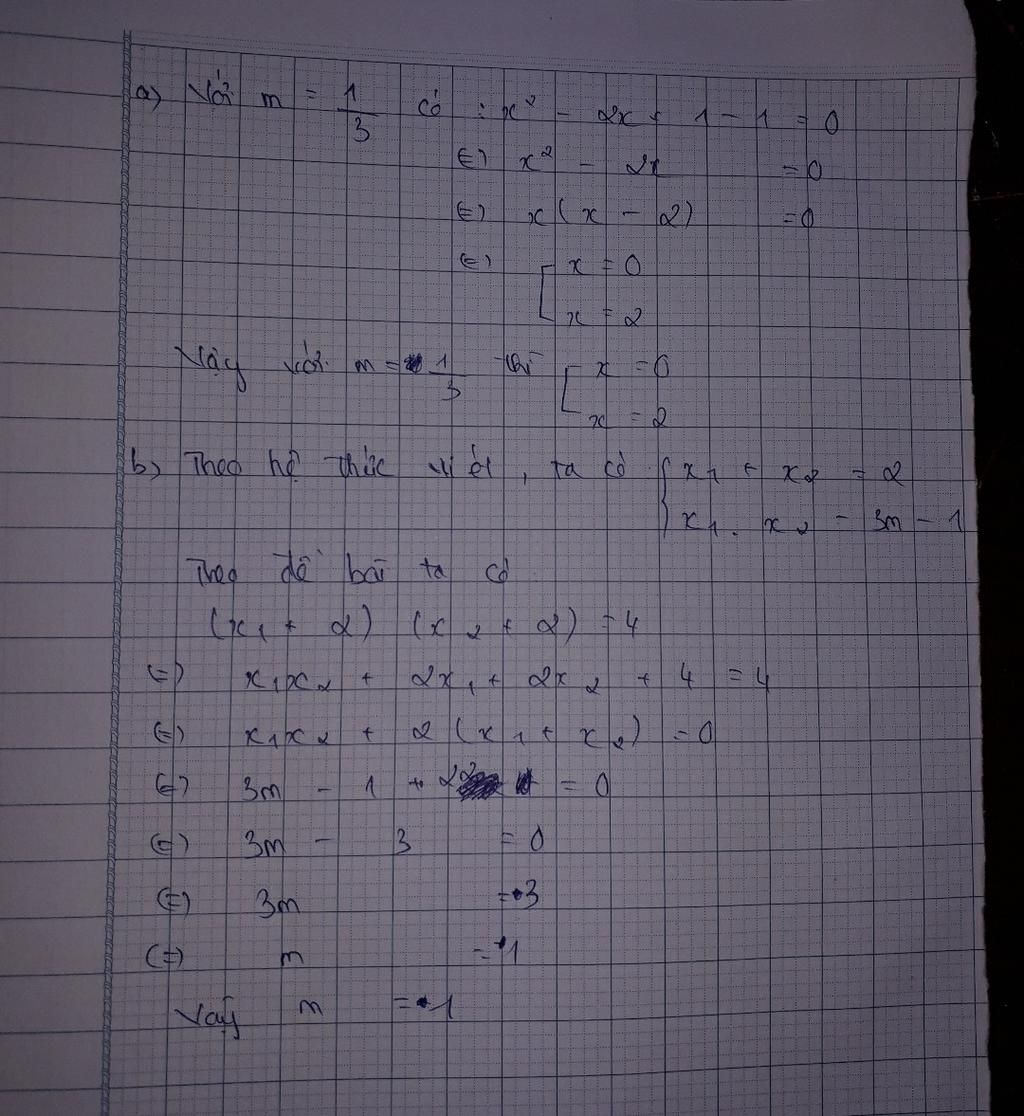 a) Với m = 1/3 có : x² - 2x + 1 - 1 = 0
(=) x² - 2x = 0
(=) x(x - 2) = 0
(=) [ x = 0
x = 2
Vậy với m = 1/3 thì [ x = 0
x = 2
b) Theo hệ thức viét, ta có { x₁ + x₂ = 2
x₁ . x₂ = 3m - 1
Theo đề bài ta có
(x₁ + 2) (x₂ + 2) = 4
(=) x₁x₂ + 2x₁ + 2x₂ + 4 = 4
(=) x₁x₂ + 2(x₁ + x₂) = 0
(=) 3m - 1 + = 0
(=) 3m - 3 = 0
(=) 3m = 3
(=) m = 1
Vậy m = 1